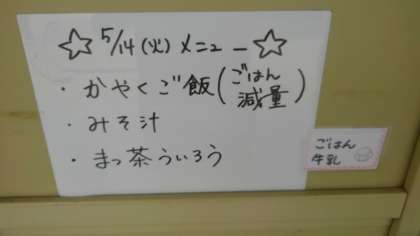 ☆5/14(火)メニュー☆
・かやくご飯(ごはん減量)
・みそ汁
・まっ茶ういろう
ごはん
牛乳